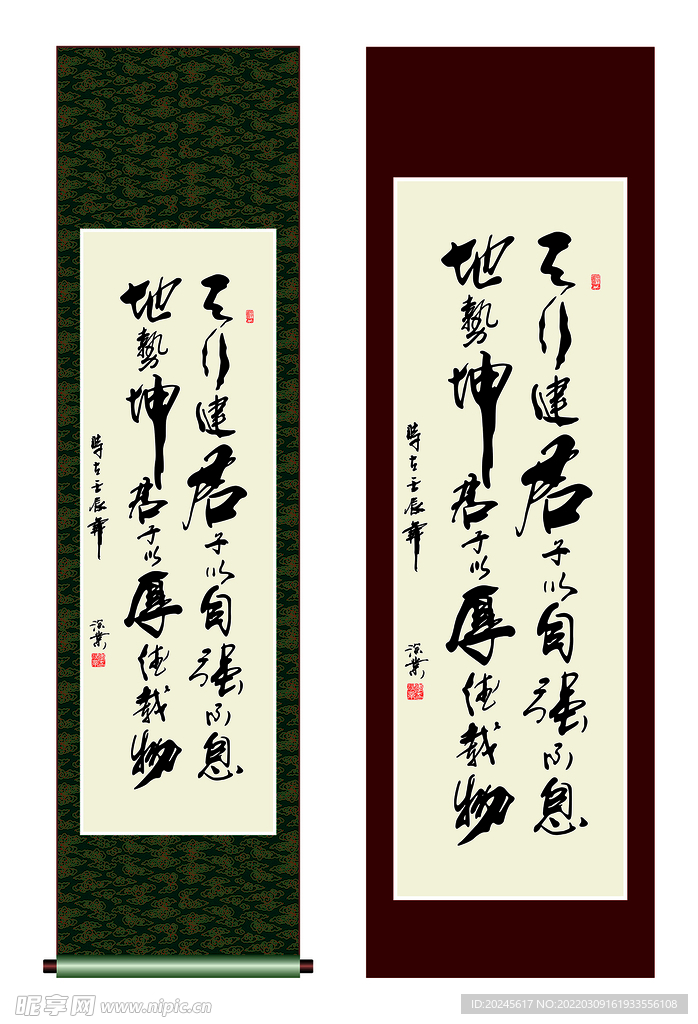 天行建君子以自强不息
地勢坤君子以厚德載物
時在壬辰年
天行建君子以自强不息
地勢坤君子以厚德載物
時在壬辰年
昵享网 www.nipic.cn
ID:20245617 NO:20220309161933556108